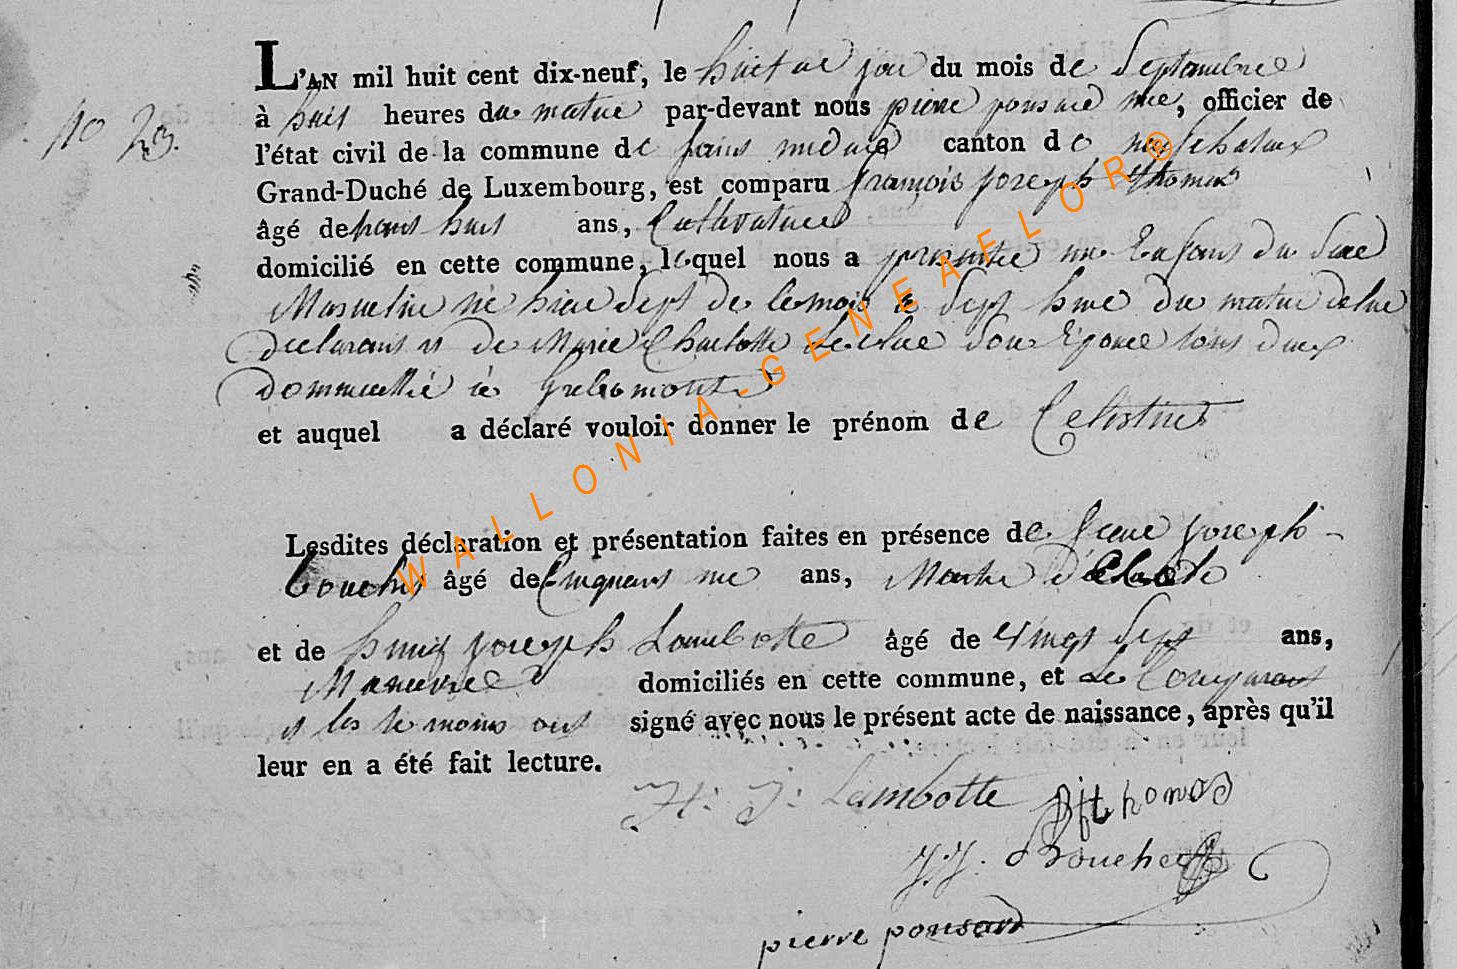 L'AN mil huit cent dix-neuf, le huit jour du mois de Septembre
No 23.
à huit heures du matin par-devant nous pierre ponsard officier de
l'état civil de la commune de canton de neufchateau
Grand-Duché de Luxembourg, est comparu françois joseph thomas
âgé de ans, Cultivateur
domicilié en cette commune, lequel nous a présenté un Enfans du Sexe
Masculin né hier Sept de ce mois à Sept heure du matin de lui
declarant et de Marie Charlotte son Epouse tous deux
domicillié à
et auquel a déclaré vouloir donner le prénom de Celestin
Lesdites déclaration et présentation faites en présence de joseph
bouché âgé de ans, d'Ecole
et de joseph Lambotte âgé de Vingt Sept ans,
Manuvre domiciliés en cette commune, et Le Comparant
et les te moins ont signé avec nous le présent acte de naissance, après qu'il
leur en a été fait lecture.
H: J: Lambotte thomas
J.J. Bouché
pierre ponsard
WALLONIA-GENEAELOR®